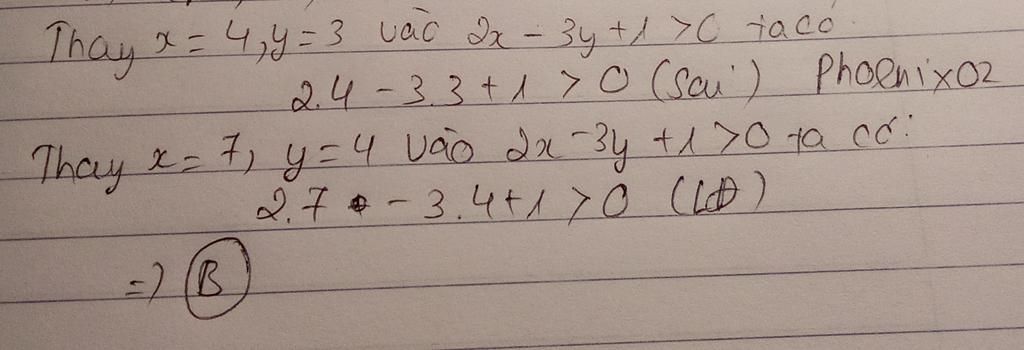 Thay x = 4, y = 3 vào 2x - 3y + 1 > 0 ta có
2.4 - 3.3 + 1 > 0 (Sai) Phoenix02
Thay x = 7, y = 4 vào 2x - 3y + 1 > 0 ta có:
2.7 - 3.4 + 1 > 0 (LĐ)
=) B